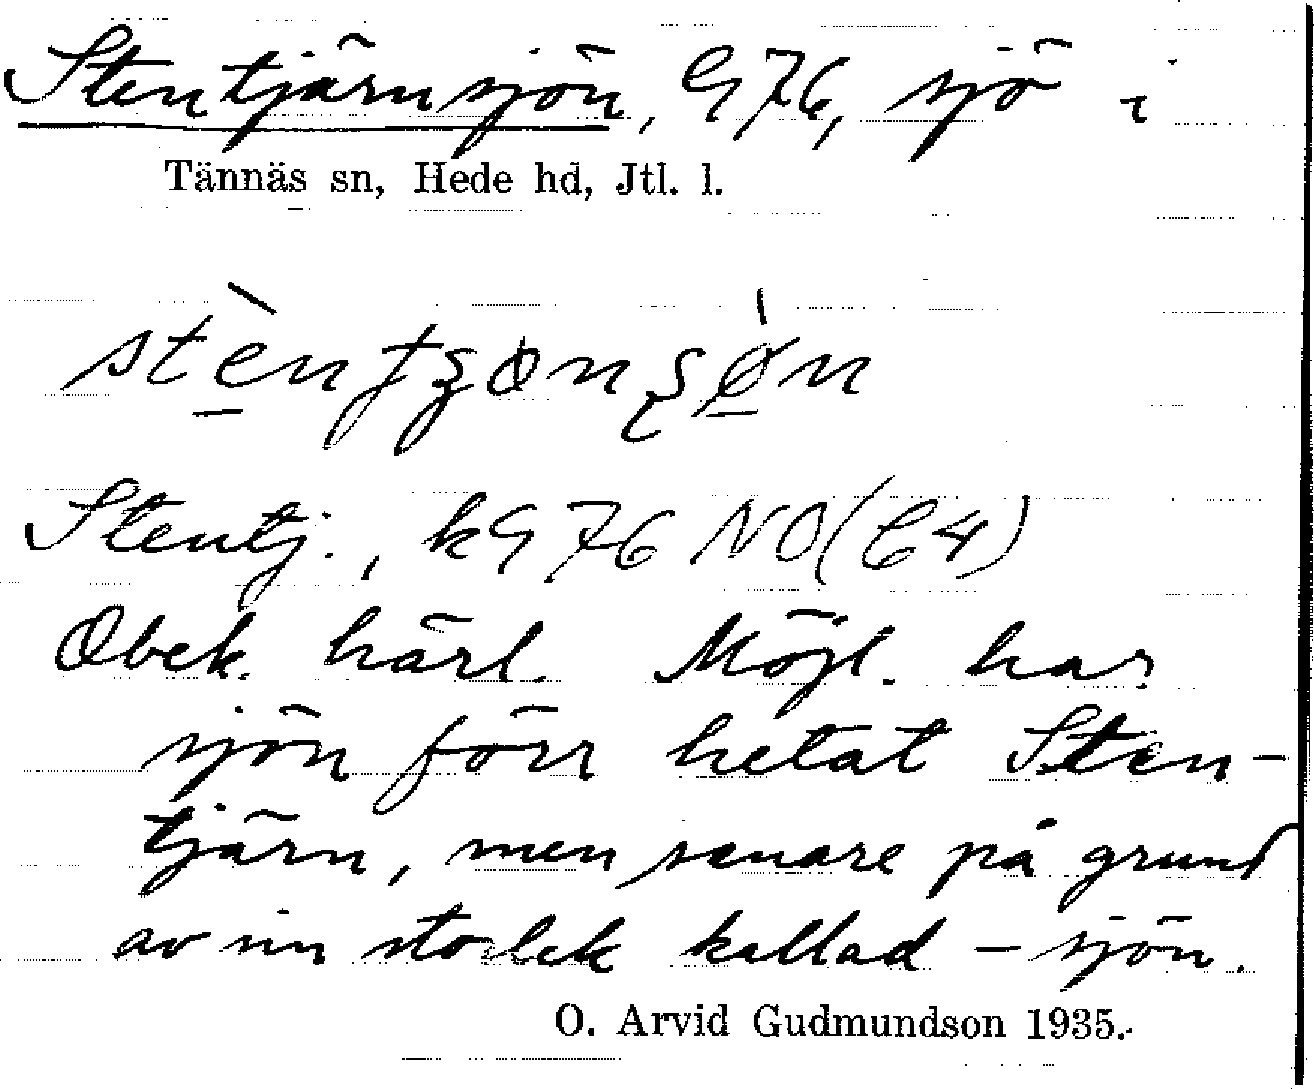 Stentjärnsjön, G76, sjö i
Tännäs sn, Hede hd, Jtl. l.
Stentj., kG 76 NO (C4)
Obek. härl. Möjl. har
sjön förr hetat Sten-
tjärn, men senare på grund
av sin storlek kallad – sjön.
O. Arvid Gudmundson 1935.